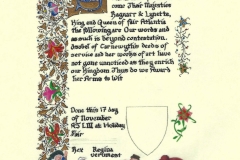 come Their Majesties
Ragnarr & Lynette,
King and Queen of fair Atlantia
the following are Our words and
as such is beyond contestation.
Isobel of Carnewythie deeds of
service and her works of art have
not gone unnoticed as they enrich
our Kingdom Thus do we Award
her Arms to Wit
Done this 17 day
of November
AS LIII at Holiday
Fair
Rex Regina